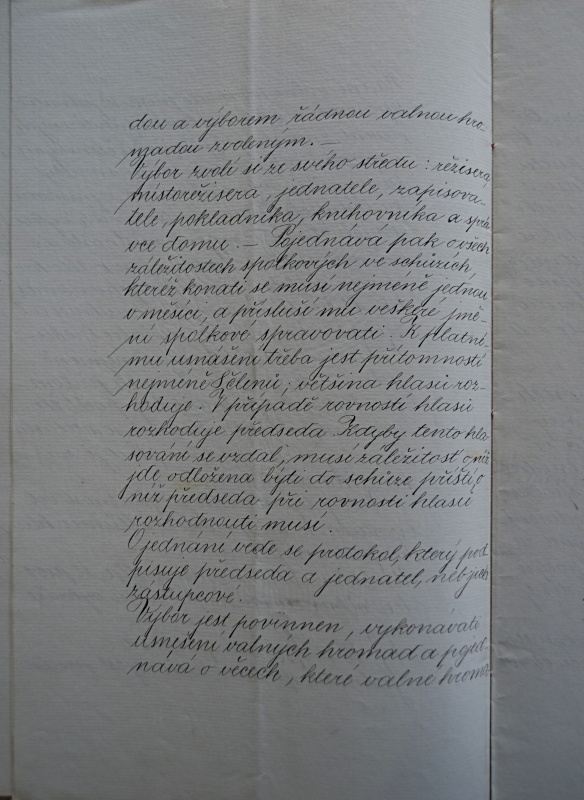 dou a výborem řádnou valnou hro-
madou zvoleným. —
Výbor zvolí si ze svého středu: režiséra,
místorežiséra, jednatele, zapisova-
tele, pokladníka, knihovníka a sprá
vce domu. — Pojednává pak o všech
záležitostech spolkových ve schůzích,
kteréž konati se musí nejméně jednou
v měsíci, a přísluší mu veškeré jmě-
ní spolkové spravovati. K platné-
mu usnášení třeba jest přítomností
nejméně 5 členů; většina hlasů roz-
hoduje. V případě rovností hlasů
rozhoduje předseda. Kdyby tento hla
sování se vzdal, musí záležitost o niž
jde odložena býti do schůze příští, o
níž předseda při rovnosti hlasů
rozhodnouti musí.
O jednání vede se protokol, který pod
pisuje předseda a jednatel, neb jich
zástupcové.
Výbor jest povinnen, vykonávati
usnesení valných hromad a pojed
nává o věcech, které valné hroma